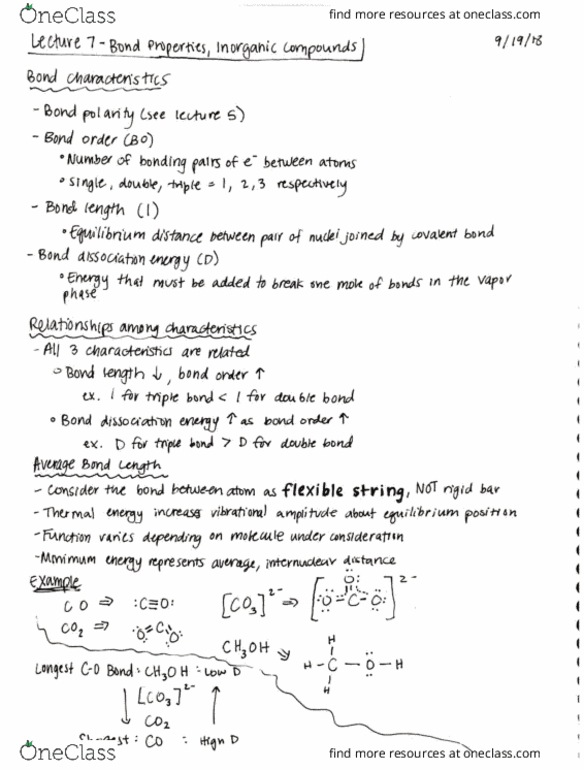 OneClass
find more resources at oneclass.com
Lecture 7 - Bond Properties, Inorganic Compounds
9/19/18
Bond Characteristics
- Bond polarity (see lecture 5)
- Bond order (BO)
• Number of bonding pairs of e⁻ between atoms
• Single, double, triple = 1, 2, 3 respectively
- Bond length (l)
• Equilibrium distance between pair of nuclei joined by covalent bond
- Bond dissociation energy (D)
• Energy that must be added to break one mole of bonds in the vapor
phase
Relationships among characteristics
- All 3 characteristics are related
○ Bond length ↓, bond order ↑
ex. l for triple bond < l for double bond
• Bond dissociation energy ↑ as bond order ↑
ex. D for triple bond > D for double bond
Average Bond Length
- Consider the bond between atom as flexible string, NOT rigid bar
- Thermal energy increases vibrational amplitude about equilibrium position
- Function varies depending on molecule under consideration
- Minimum energy represents average, internuclear distance
Example
CO ⇒ :C≡O:
[CO₃]²⁻ ⇒ [O=C-O O]²⁻
CO₂ ⇒ O=C O
CH₃OH
H
H - C - O - H
H
Longest C-O Bond: CH₃OH : Low D
[CO₃]²⁻
CO₂
: CO : High D
OneClass
find more resources at oneclass.com